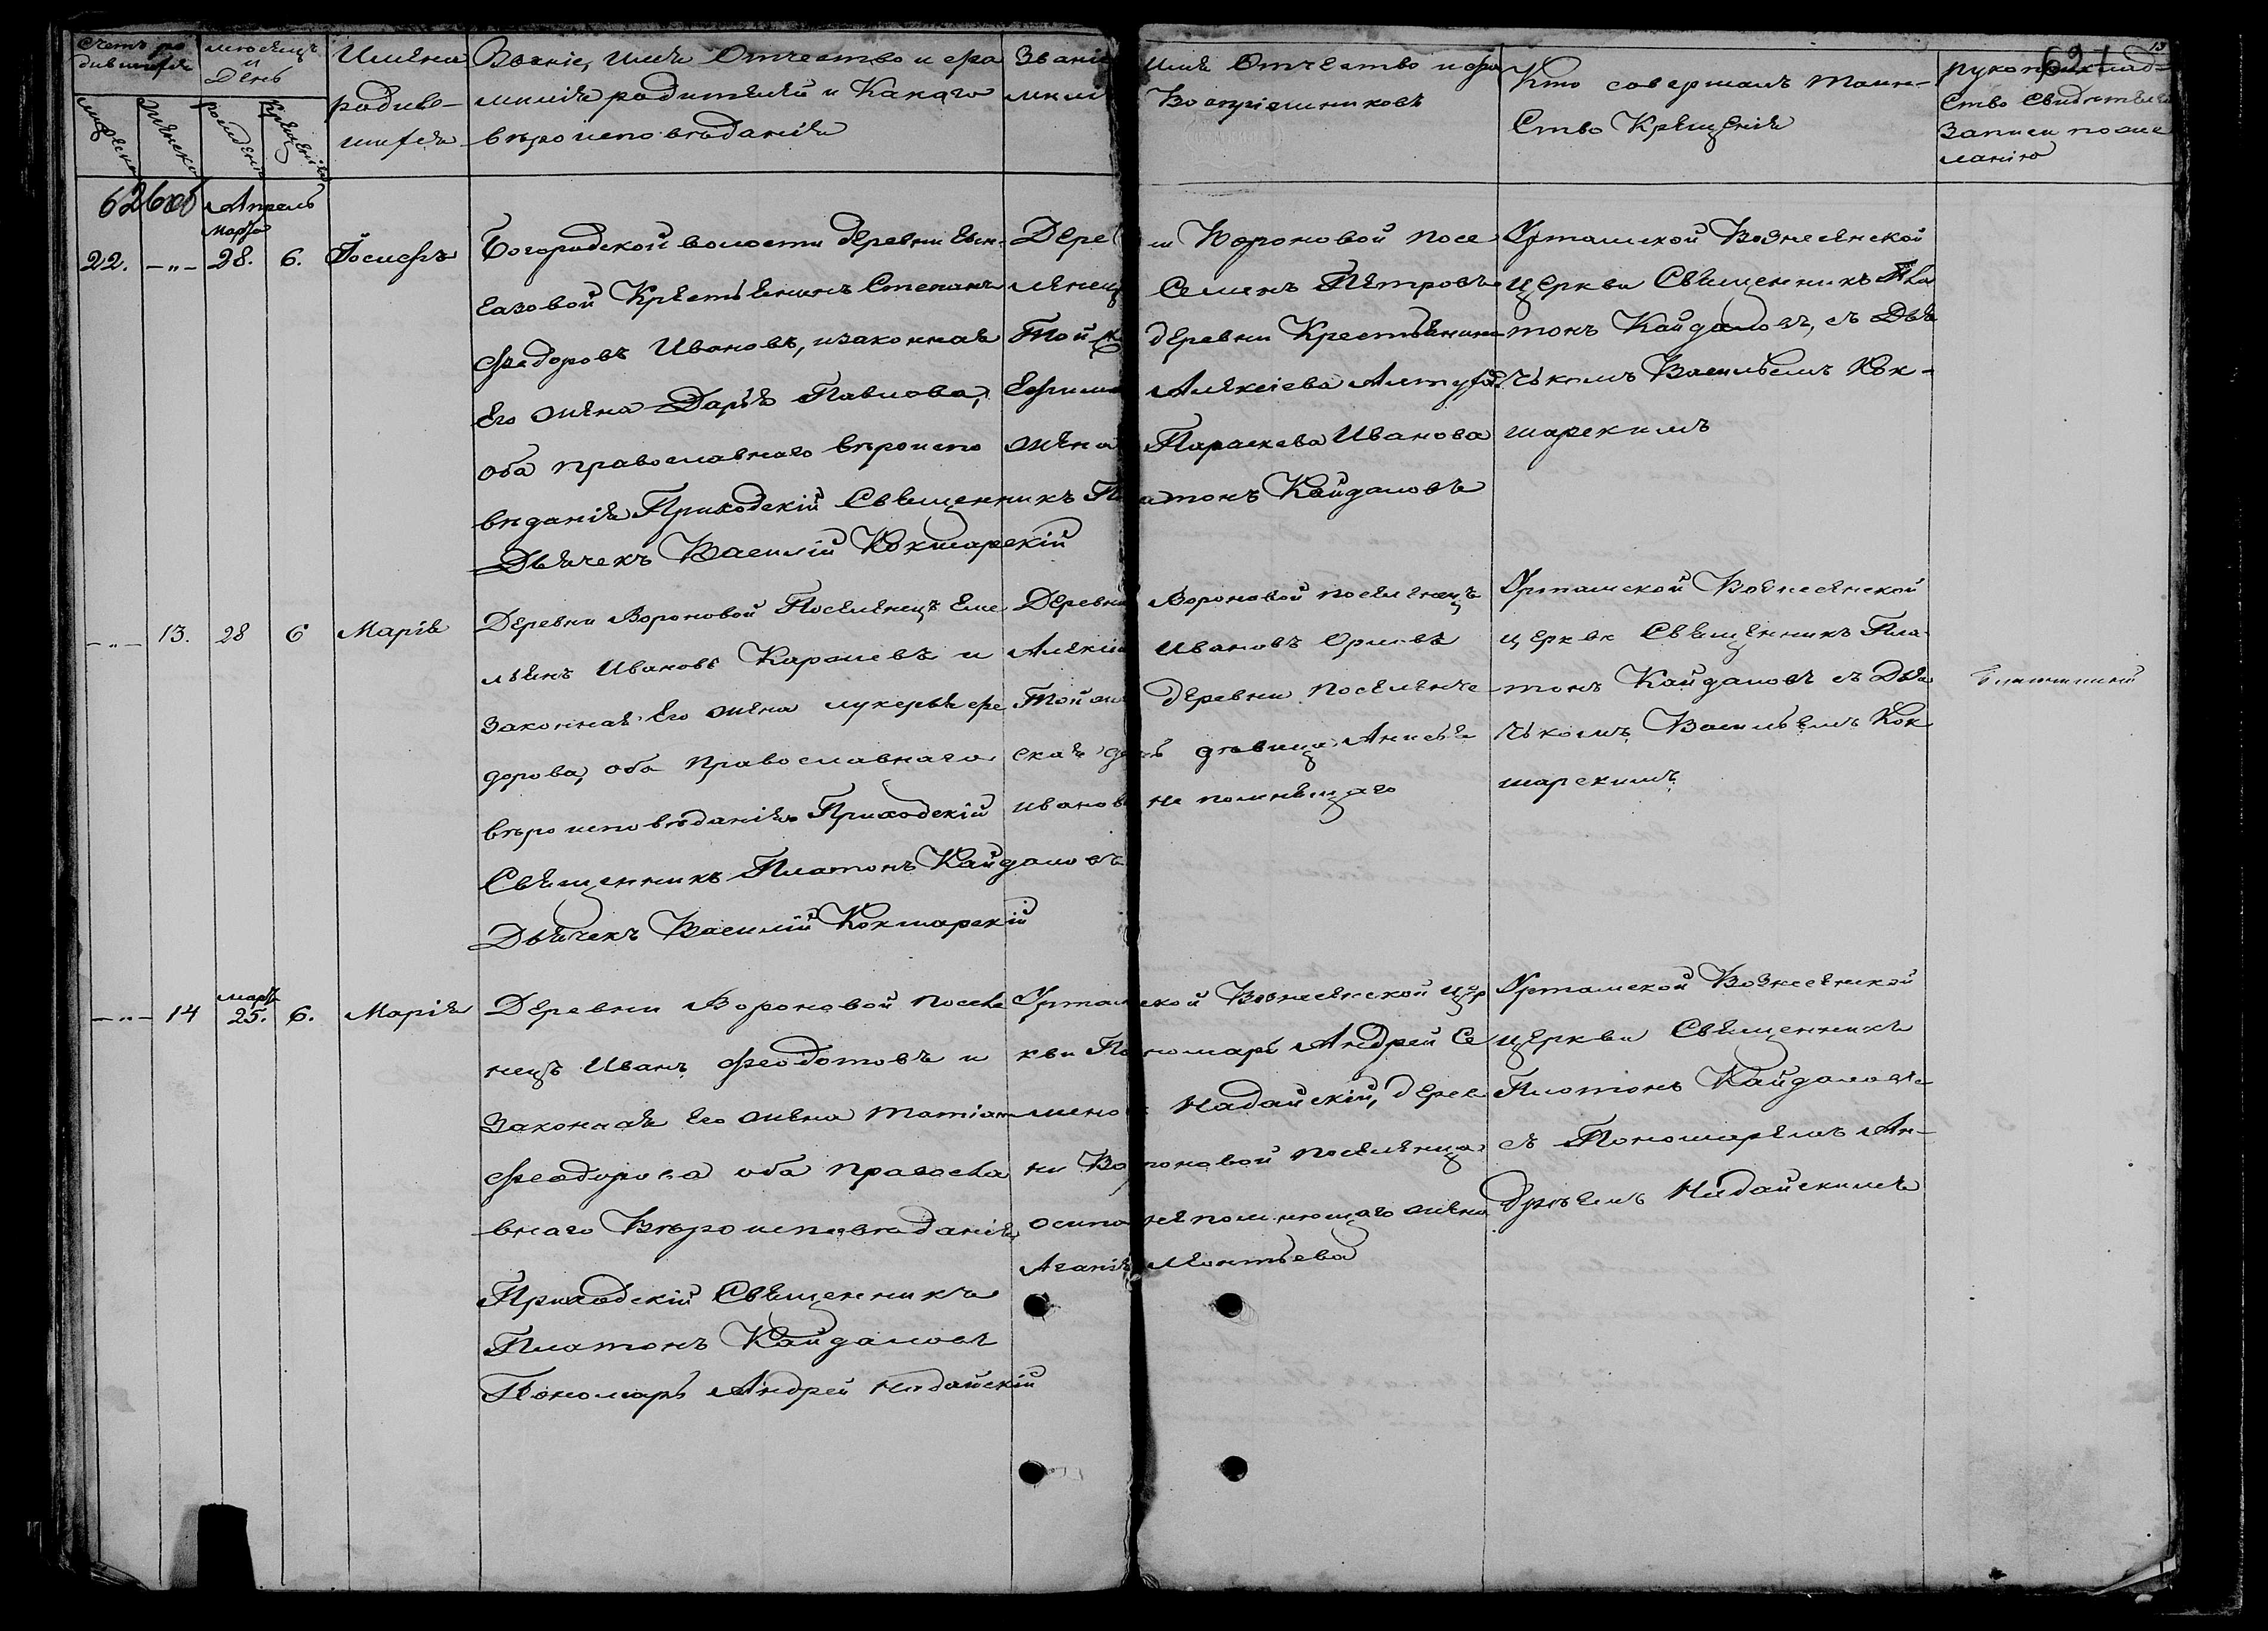 Счетъ ро
дившихся
мужеска
женска
мѣсяцъ
и
день
рожденія
крещенія
Имена
родив-
шихся
Званіе, имя Отчество и фа
милія родителей и Какого
вѣроисповѣданія
Званіе имя Отчество и фа
милі Воспріемниковъ
Кто совершалъ Таин-
ство Крещенія
рукоприклад-
ство свидѣтелей
Записи по же
ланію
13
626об
Апрель
Марта
22. —„— 28. 6. Іосифъ
Богородской волости деревни
Крестьянинъ Степанъ
Федоровъ Ивановъ, изаконная
Его жена Дарья Павлова,
оба православнаго вѣроиспо
вѣданія Приходскій Священникъ Платонъ Кайдаловъ
Дьячекъ Василій Кокшарскій
Деревни Вороновой посе
ленец Семенъ Петровъ
Той же деревни Крестьянина
Ефима Алексіева
жена Параскева Иванова
Уртамской Вознесенской
церкви Священникъ Пла
тонъ Кайдаловъ, съ Дья
чькомъ Васильемъ Кок-
шарскимъ
—„— 13. 28 6 Марія
Деревни Вороновой Поселенецъ Еме
льянъ Ивановъ и
Законная Его жена Лукерья Фе
дорова, оба Православнаго
вѣроисповѣданія Приходскій
Священникъ Платонъ Кайдаловъ
Дьячекъ Василій Кокшарскій
Деревни Вороновой поселенецъ
Алексій Ивановъ Орловъ
Той же деревни поселенче
ская дочь девица Анисья
Иванова не помнящаго
Уртамской Вознесенской
церкви Священникъ Пла
тонъ Кайдаловъ съ Дья
чькомъ Васильемъ Кок
шарскимъ
—„— 14 марта 25. 6. Марія
Деревни Вороновой посел
нецъ Иванъ Феодотовъ и
Законная Его жена Татіана
Феодорова оба правосла
внаго Вѣроисповѣданія
Приходскій Священникъ
Платонъ Кайдаловъ
Пономарь Андрей Надайскій
Уртамской Вознесенской цер
кви Пономарь Андрей Се
менов Надайскій, дерев
ни Вороновой поселенца
осипа непомнющаго жена
Агапія Леонтьева
Уртамской Вознесенской
церкви Священникъ
Платонъ Кайдаловъ
съ Пономаремъ Ан-
дрѣемъ Надайскимъ